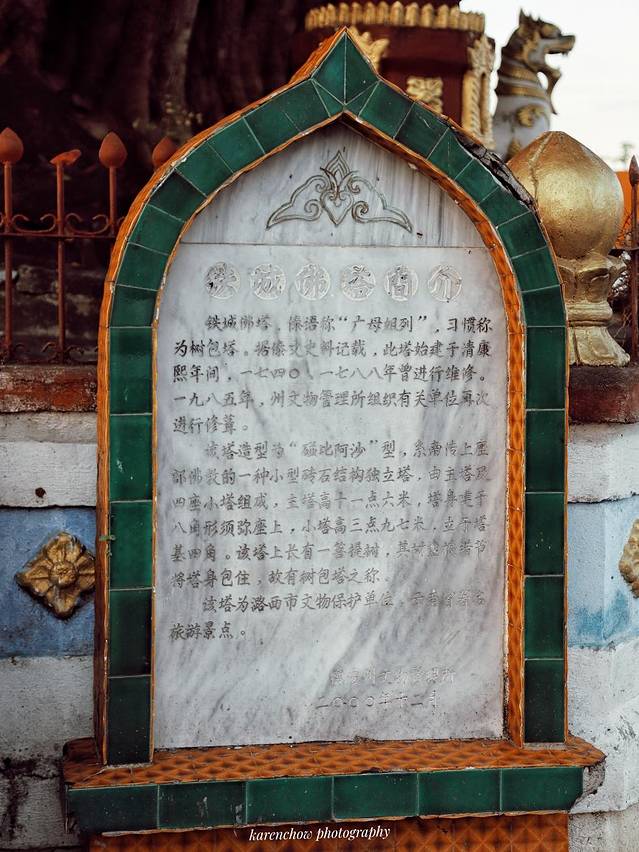 铁城佛塔简介
铁城佛塔，傣语称“广母姐列”，习惯称
为树包塔。据傣文史料记载，此塔始建于清康
熙年间，一七四〇、一七八八年曾进行维修。
一九八五年，州文物管理所组织有关单位再次
进行修葺。
该塔造型为“碰比阿沙”型，系南传上座
部佛教的一种小型砖石结构独立塔，由主塔及
四座小塔组成，主塔高十一点六米，塔身建于
八角形须弥座上，小塔高三点九七米，立于塔
基四角。该塔上长有一菩提树，其
将塔身包住，故有树包塔之称。
该塔为潞西市文物保护单位，
旅游景点。
州文物管理所
二〇〇〇年十二月
karenchow photography